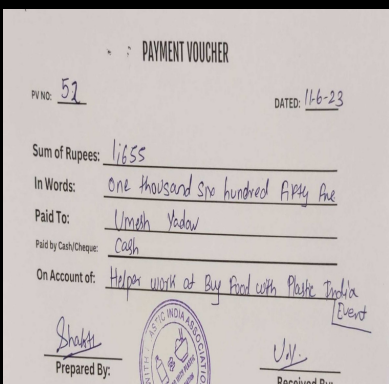 PAYMENT VOUCHER
PV NO: 52
DATED: 11-6-23
Sum of Rupees: 1,655
In Words: One thousand six hundred Fifty five
Paid To: Umesh Yadav
Paid by Cash/Cheque: Cash
On Account of: Helper work at Buy Food with Plastic India
Event
Shakti
Prepared By:
Received By:
ASTIC INDIA ASSOCIATIO
WITH